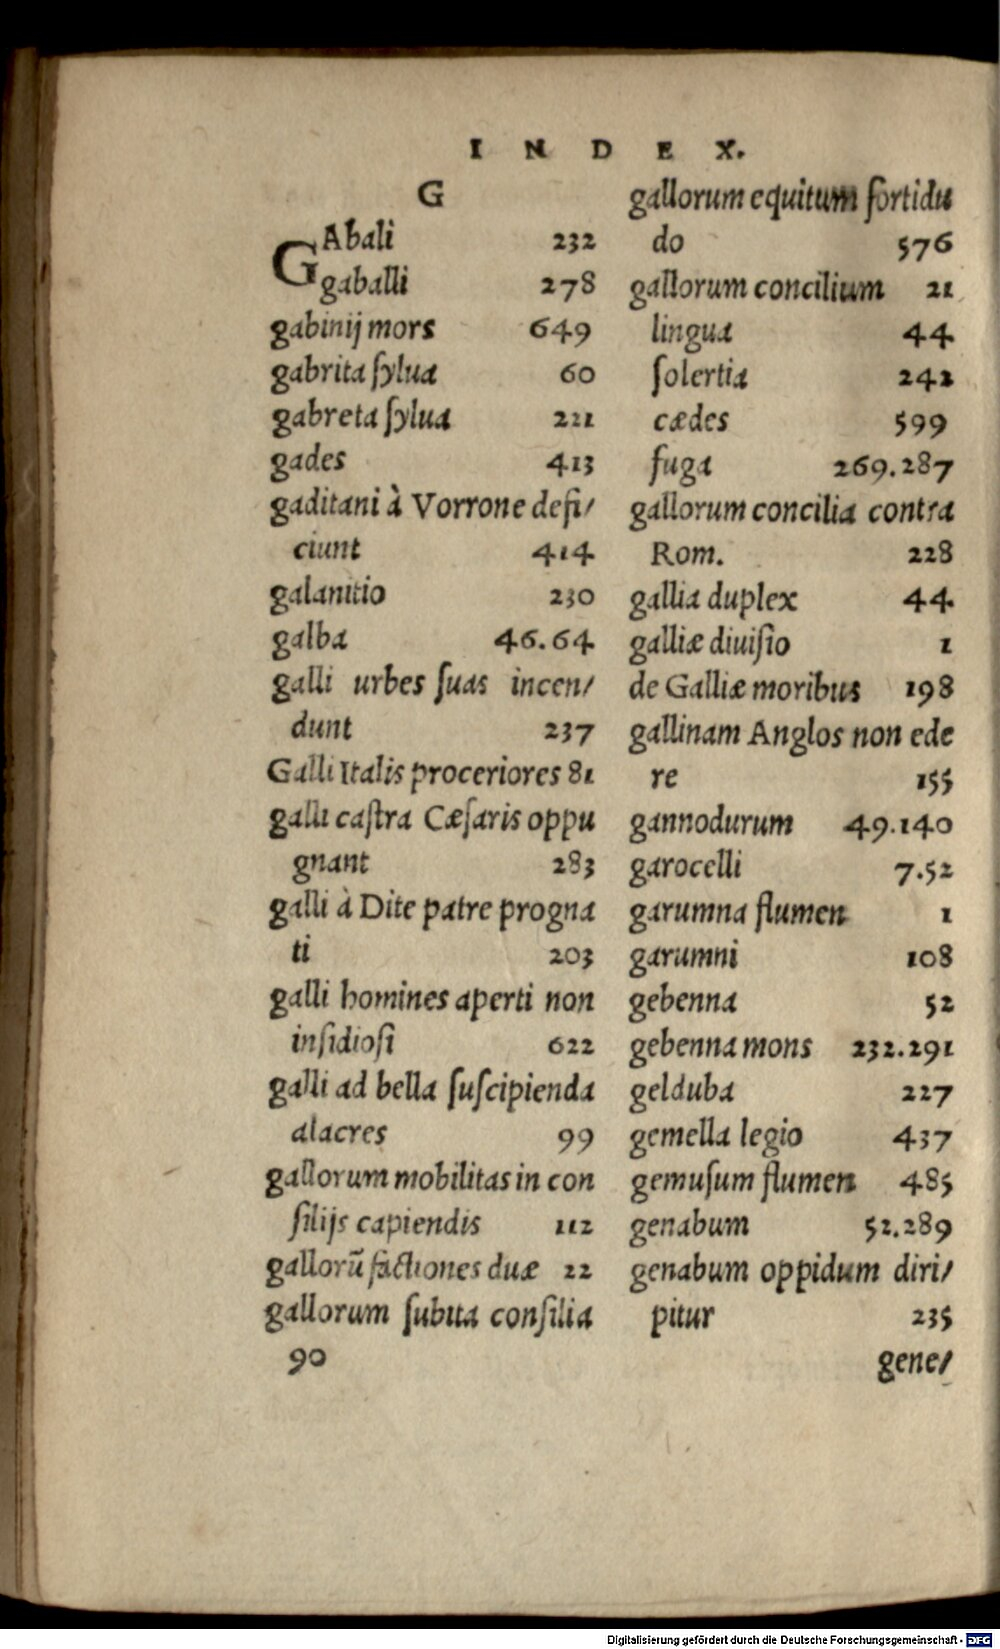 INDEX.
G
GAbali 232
gaballi 278
gabinij mors 649
gabrita ſylua 60
gabreta ſylua 221
gades 413
gaditani à Vorrone defi/
ciunt 414
galanitio 230
galba 46.64
galli urbes ſuas incen/
dunt 237
Galli Italis proceriores 81
galli caſtra Cæſaris oppu
gnant 283
galli à Dite patre progna
ti 203
galli homines aperti non
inſidioſi 622
galli ad bella ſuſcipienda
alacres 99
gallorum mobilitas in con
ſilijs capiendis 112
gallorū factiones duæ 22
gallorum ſubita conſilia
90
gallorum equitum fortidu
do 576
gallorum concilium 21
lingua 44
ſolertia 242
cædes 599
fuga 269.287
gallorum concilia contra
Rom. 228
gallia duplex 44
galliæ diuiſio 1
de Galliæ moribus 198
gallinam Anglos non ede
re 155
gannodurum 49.140
garocelli 7.52
garumna flumen 1
garumni 108
gebenna 52
gebenna mons 232.291
gelduba 227
gemella legio 437
gemuſum flumen 485
genabum 52.289
genabum oppidum diri/
pitur 235
gene/
Digitalisierung gefördert durch die Deutsche Forschungsgemeinschaft - DFG